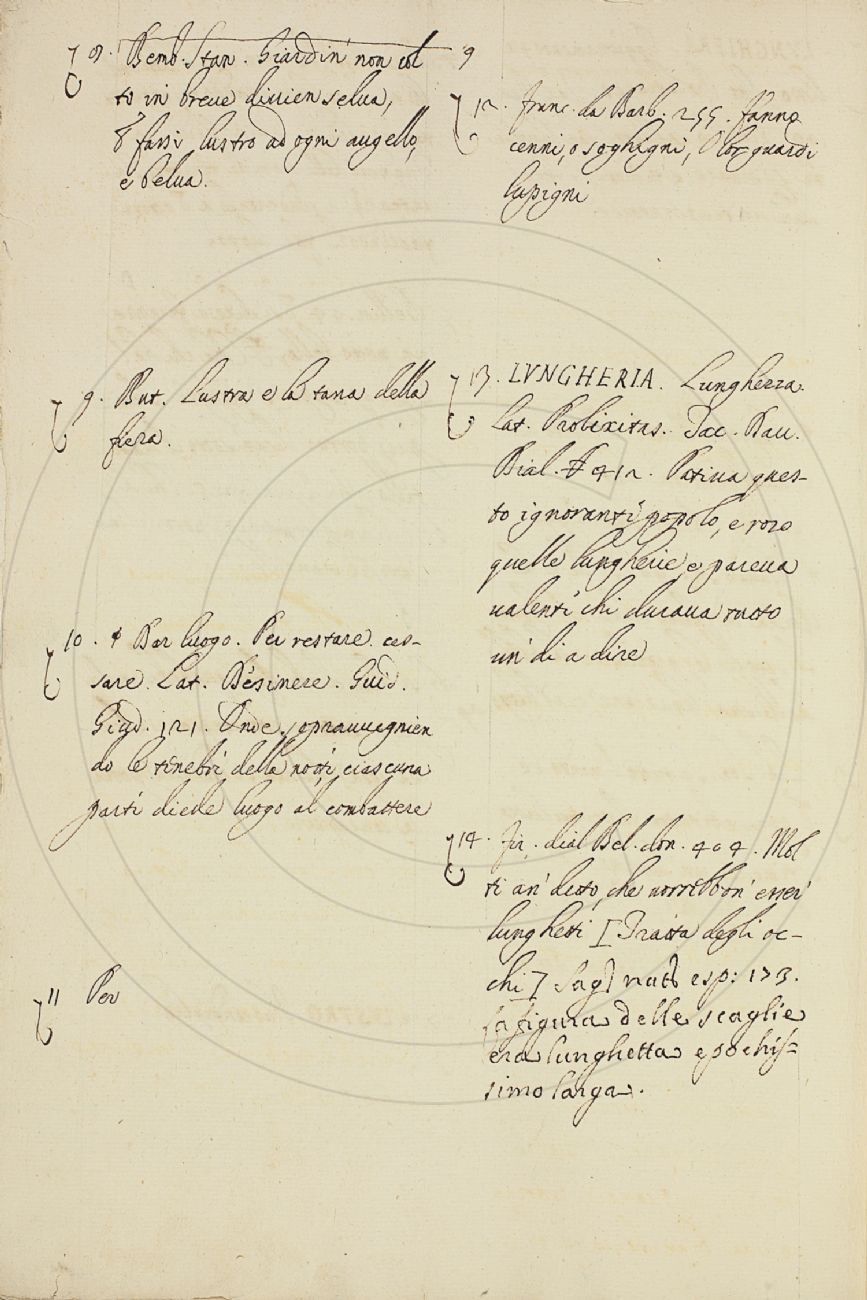 8. Bemb. Stan. Giardin' non col
to in' breue diuien selua,
E farsi lustro ad ogni augello,
e belua.
9. But. Lustra e la tana della
fiera.
10. ¶ Dar luogo. Per restare. ces-
sare. Lat. Desinere. Guid.
Giud. 121. Onde sopravuegnien
do le tenebri della notti, ciascuna
parti diede luogo al combattere
11 Per
9
12. franc. da Barb. 255. fanno
cenni, o soghigni, O lor guardi
lupigni
13. LVNGHERIA. Lunghezza.
Lat. Prolixitas. Iac. Pau.
Dial. 412. Patiua ques-
to ignoranti popolo, e rozo
quelle lungherie, e pareua
ualenti chi duraua tutto
un' di a dire
14. fir. dial. Bel. don. 404. Mol
ti an' detto, che uorrebbon' esser'
lunghetti [Tratta degli oc-
chi] Sag] nat. esp: 173.
la figura delle scaglie
era lunghetta e pochis=
simo larga.